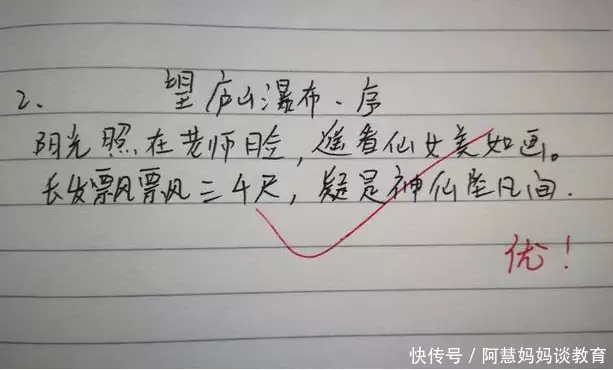 2、 望庐山瀑布、序
阳光照在老师脸,遥看仙女美如画。
长发飘飘三4尺,疑是神仙坠凡间.
优!
快传号/阿慧妈妈谈教育